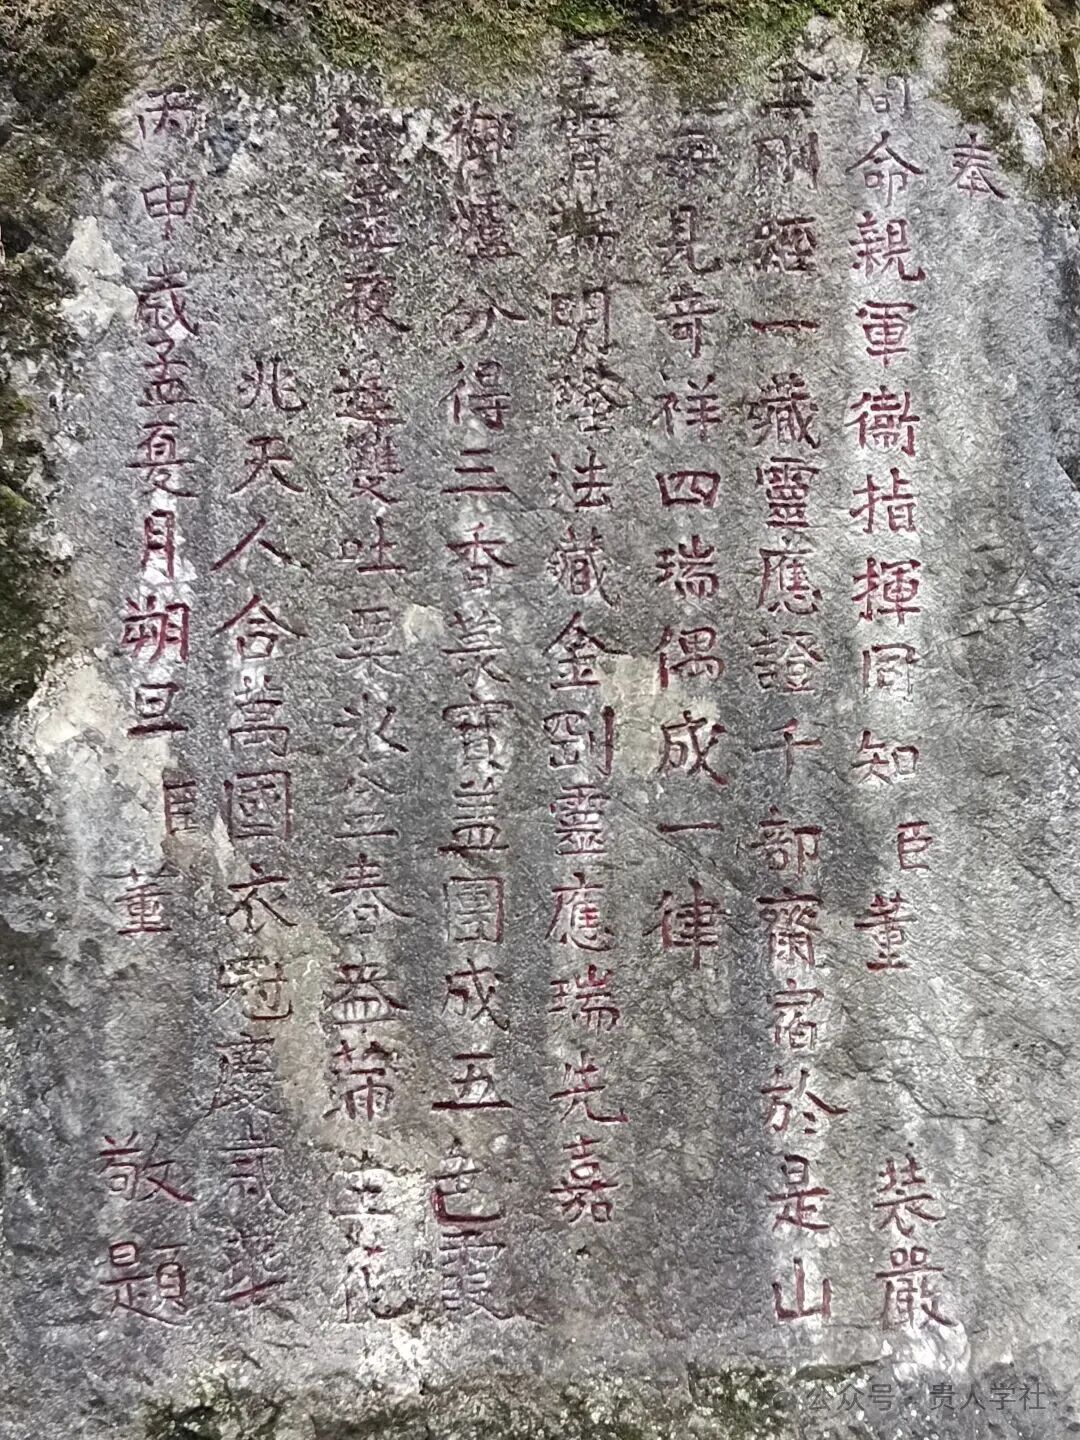 奉
命親軍衞指揮同知臣董　裝嚴
金剛經一藏靈應證千部齋宿於是山
每見奇祥四瑞偶成一律
霄端明發法藏金剛靈應瑞先嘉
御爐分得三香篆寶蓋團成五色霞
夜蓮雙吐春益
兆天人合萬國衣冠慶
丙申歲孟夏月朔旦臣董　敬題
公众号·贵人学社